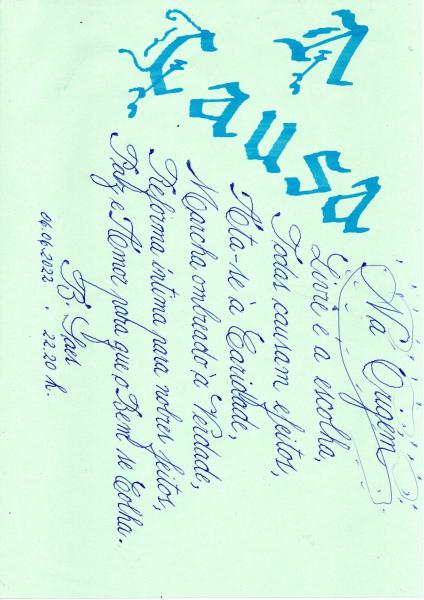 A
Causa
Na Origem
Livre é a escolha,
Todas causam efeitos,
Ata-se à Caridade,
Marcha ombreado à Verdade,
Reforma íntima para nobres feitos,
Paz e Amor para que o Bem se Colha.
06.04.2022 . 22.20 h.